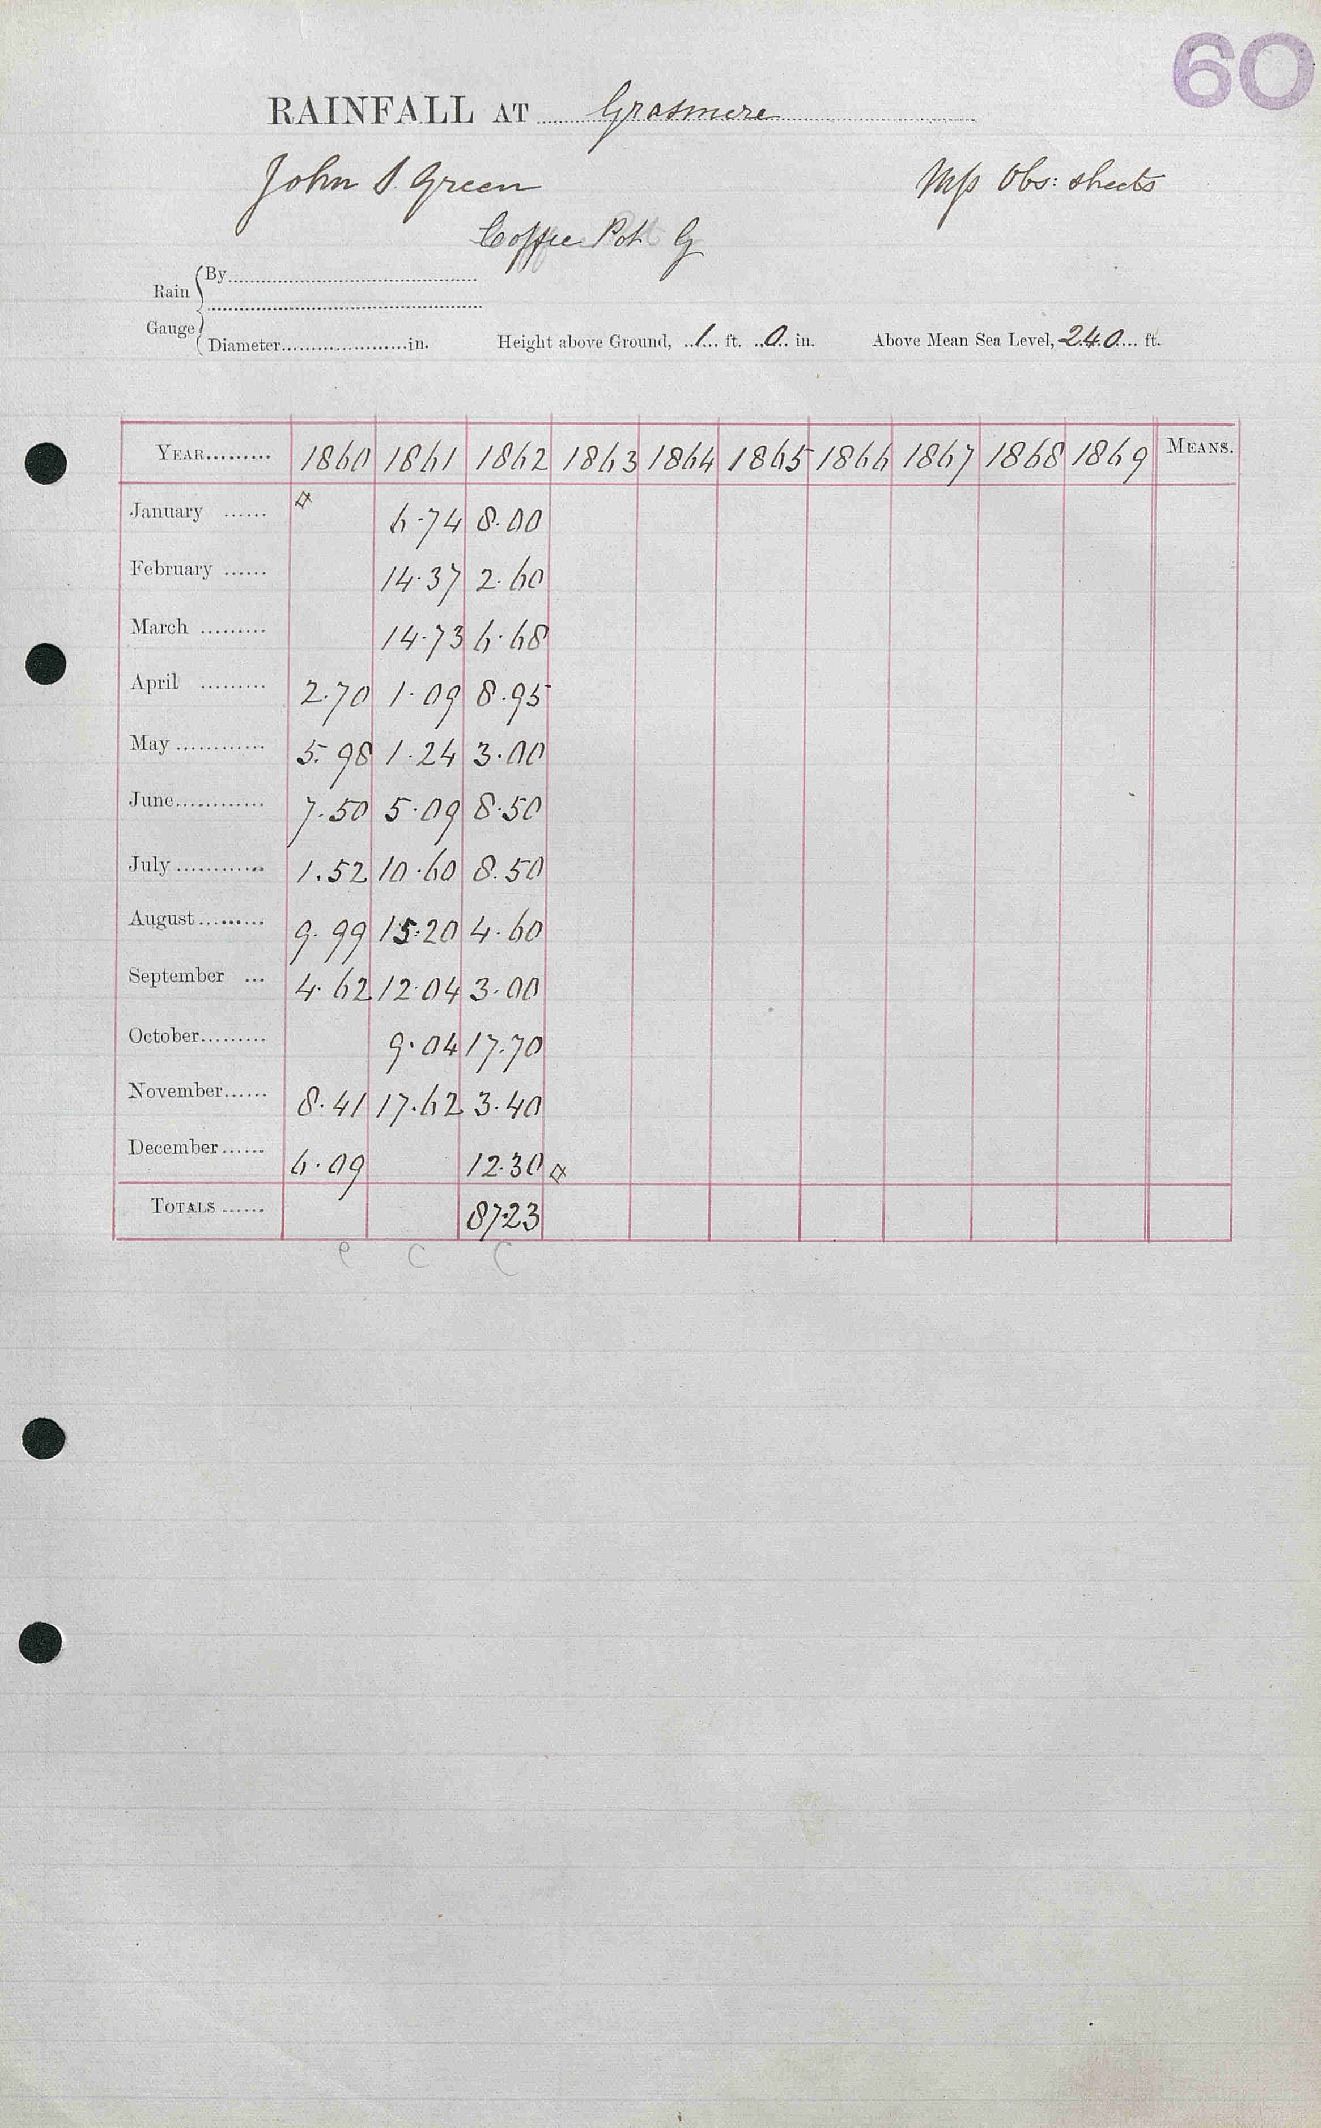 60
RAINFALL AT Grasmere
John S. Green Mss Obs: sheets
Coffee Pot G
Rain Gauge
By
Diameter in. Height above Ground, 1 ft. 0 in. Above Mean Sea Level, 240 ft.
YEAR 1860 1861 1862 1863 1864 1865 1866 1867 1868 1869 MEANS.
January 6.74 8.00
February 14.37 2.60
March 14.73 6.68
April 2.70 1.09 8.95
May 5.98 1.24 3.00
June 7.50 5.09 8.50
July 1.52 10.60 8.50
August 9.99 15.20 4.60
September 4.62 12.04 3.00
October 9.04 17.70
November 8.41 17.62 3.40
December 6.09 12.30
TOTALS 87.23
e C C